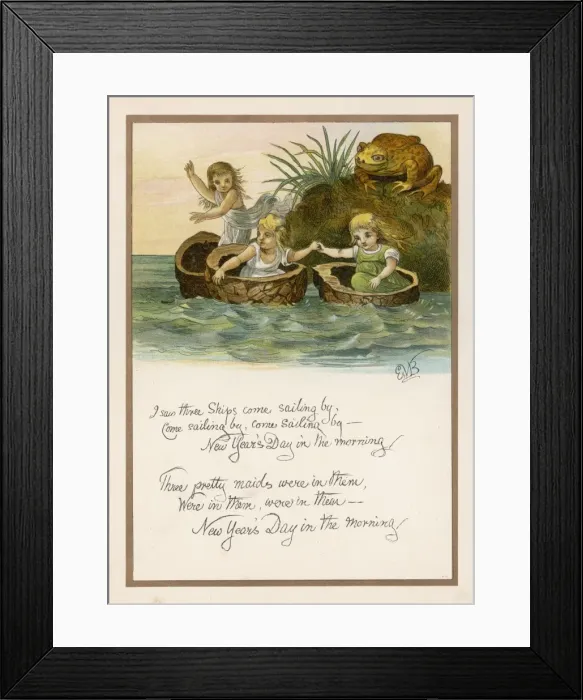 EVB
I saw three Ships come sailing by,
Come sailing by, come sailing by —
New Year's Day in the morning/
Three pretty maids were in them,
Were in them, were in them —
New Year's Day in the morning/